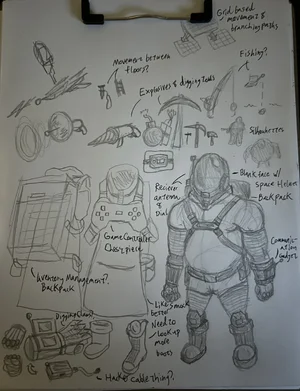 Grid based
movement &
branching paths
Movement between
floors?
Fishing?
Explosives & digging tools
Silhouettes
Blank face w/
Space Helmet
Backpack
Reciever
antenna
& Dial
Game Controller
Chestpiece
Communication
Gadget
Inventory Management?
Backpack
Like smock
better
Need to
look up
more
boots
Digging Claws?
Hacker cable thing?